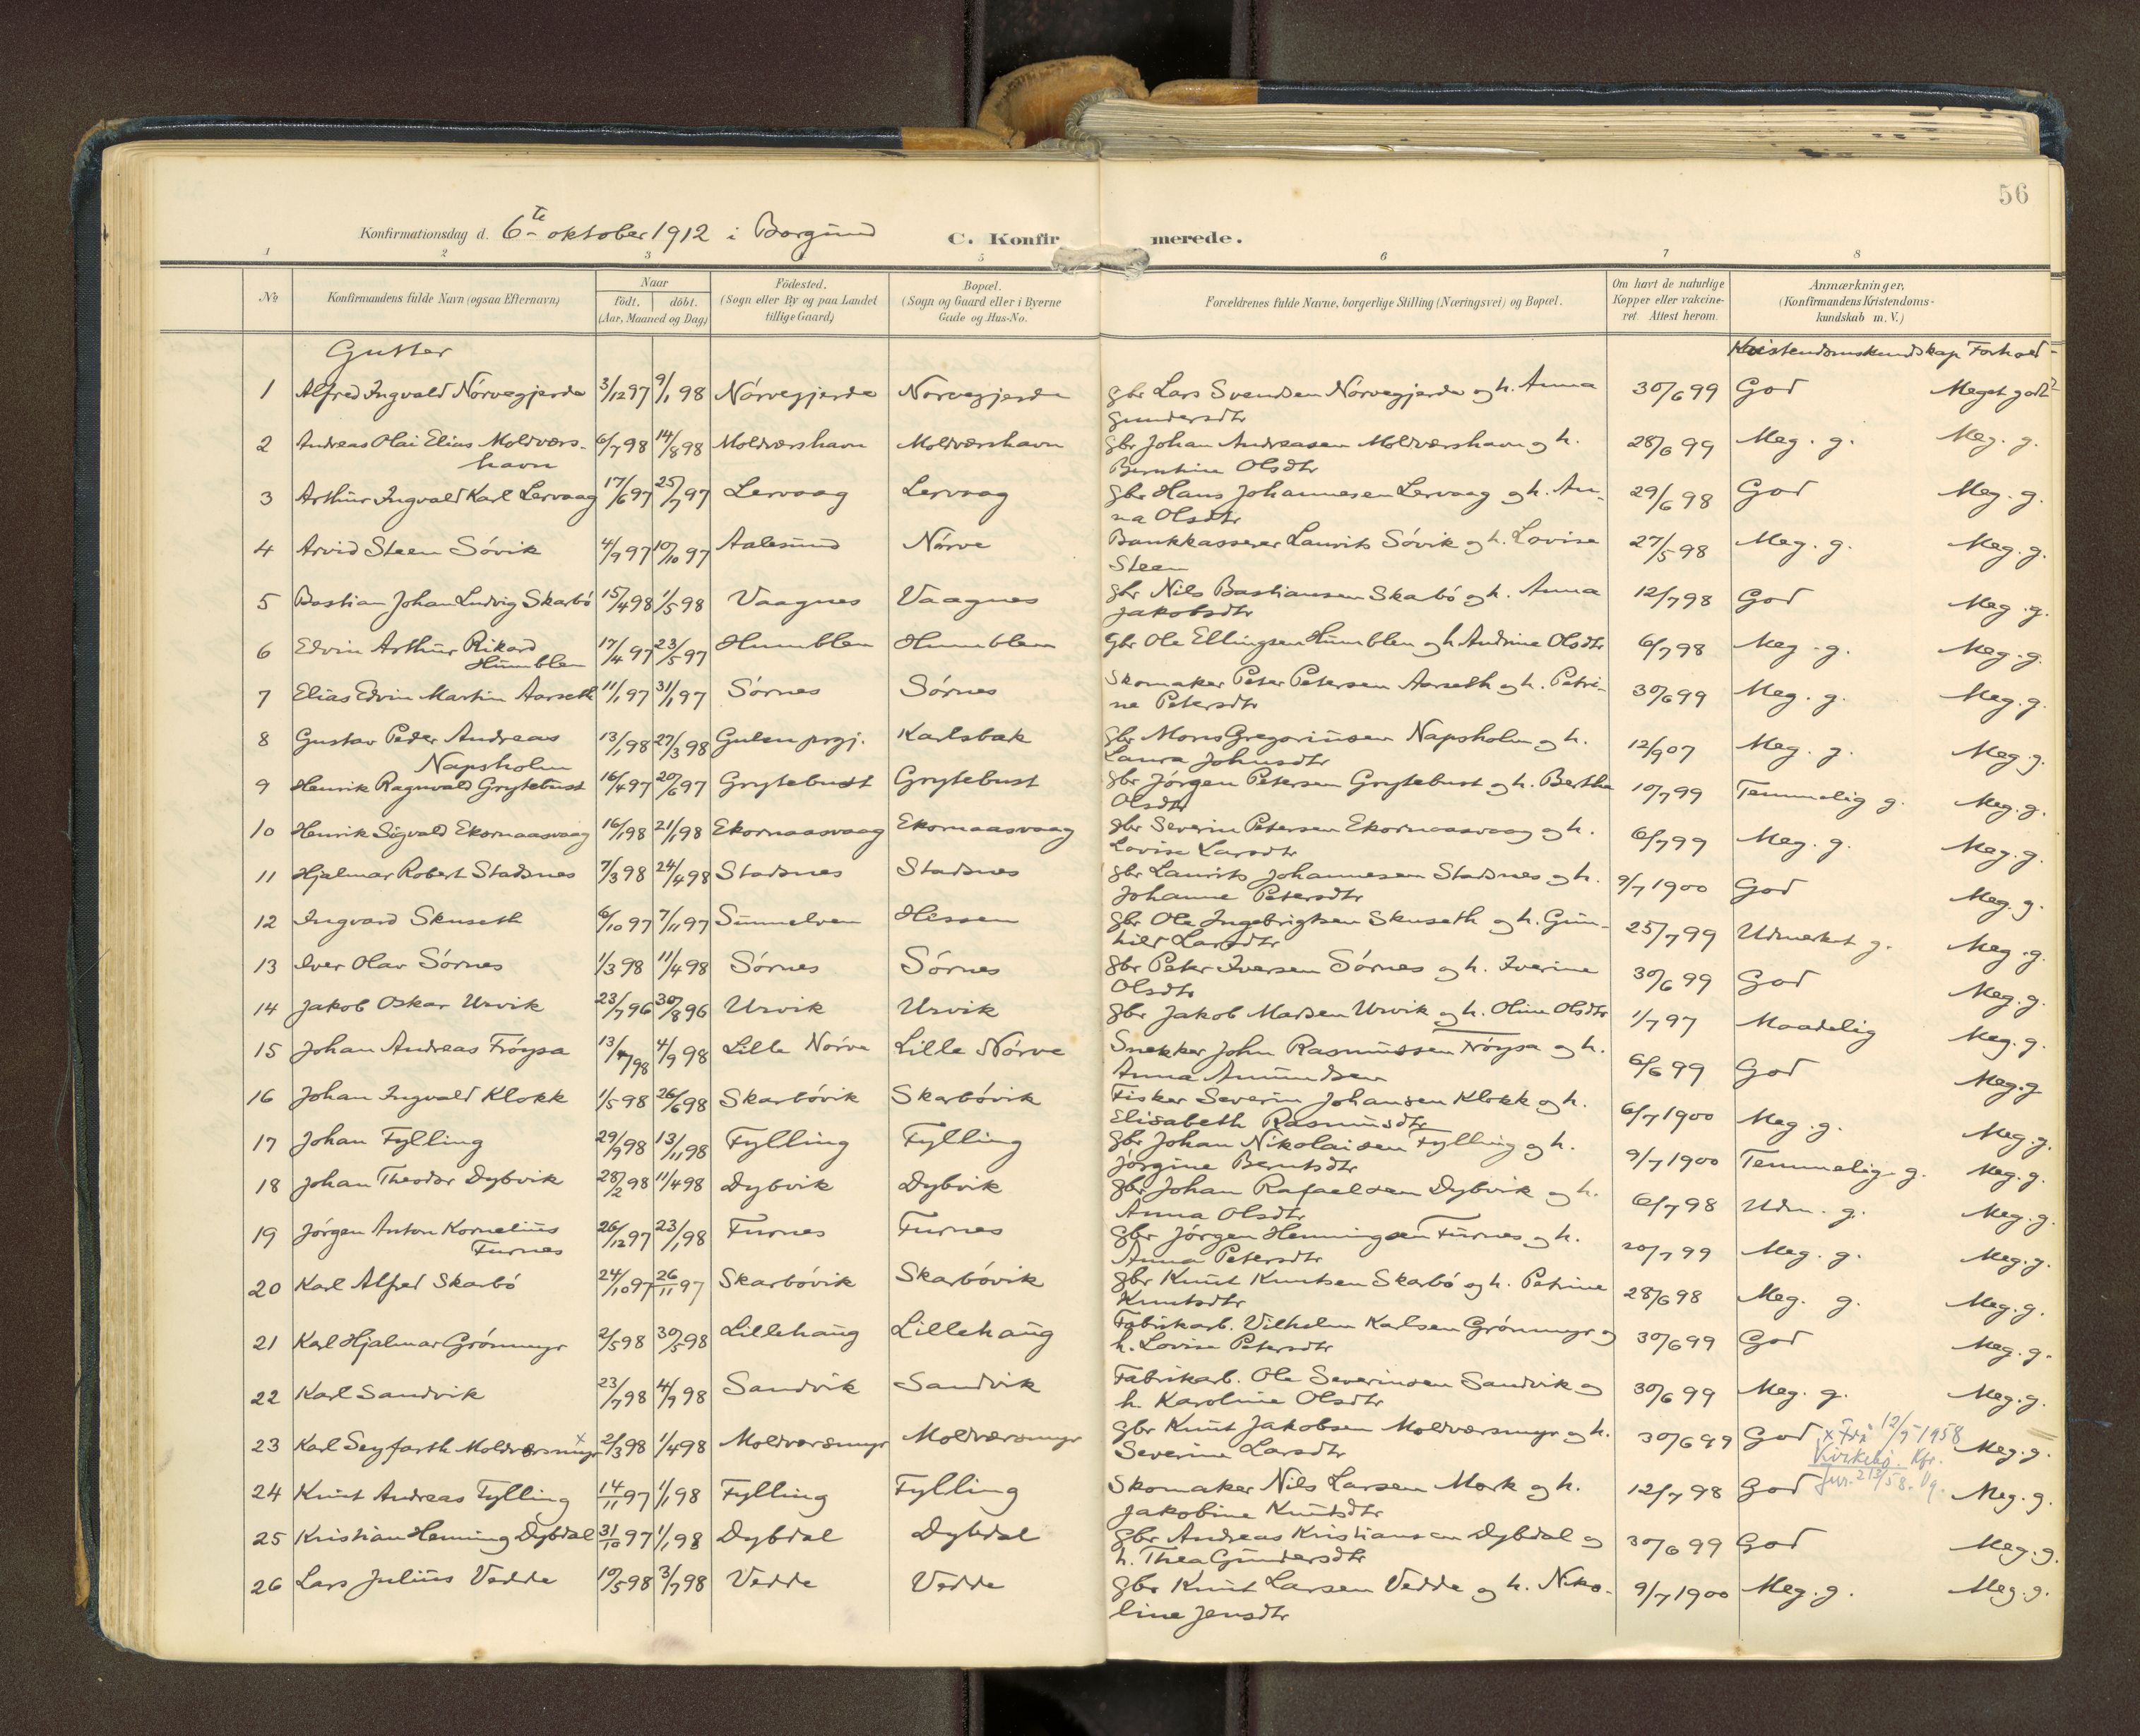 56
Konfirmationsdag d. 6te oktober 1912 i Borgund
C. Konfirmerede.
1 2 3 4 5 6 7 8
№ Konfirmandens fulde Navn (ogsaa Efternavn) Naar født, døbt. (Aar, Maaned og Dag) Fødested. (Sogn eller By og paa Landet tillige Gaard) Bopæl. (Sogn og Gaard eller i Byerne Gade og Hus-No. Forældrenes fulde Navne, borgerlige Stilling (Næringsvei) og Bopæl. Om havt de naturlige Kopper eller vakcineret Attest herom. Anmærkninger, (Konfirmandens Kristendomskundskab m. V.)
Gutter Kristendomskundskap Forhold
1 Alfred Ingvald Nørvegjerde 3/12 97 9/1 98 Nørvegjerde Nørvegjerde gbr Lars Svendsen Nørvegjerde og h. Anna 30/6 99 God Meget godt
Gundersdtr
2 Andreas Olai Elias Moldværs- 6/7 98 14/8 98 Moldværshavn Moldværshavn gbr Johan Andreasen Moldværshavn og h. 28/6 99 Meg. g. Meg. g.
havn Berntine Olsdtr
3 Arthur Ingvald Karl Lervaag 17/6 97 25/7 97 Lervaag Lervaag gbr Hans Johannesen Lervaag og h. An- 29/6 98 God Meg. g.
na Olsdtr
4 Arvid Steen Søvik 4/9 97 10/10 97 Aalesund Nørve Bankkasserer Laurits Søvik og h. Lovise 27/5 98 Meg. g. Meg. g.
Steen
5 Bastian Johan Ludvig Skarbø 15/4 98 1/5 98 Vaagnes Vaagnes gbr Nils Bastiansen Skarbø og h. Anna 12/7 98 God Meg. g.
Jakobsdtr
6 Edvin Arthur Rikard 17/4 97 23/5 97 Humblen Humblen Gbr Ole Ellingsen Humblen og h Andrine Olsdtr 6/7 98 Meg. g. Meg. g.
Humblen
7 Elias Edvin Martin Aarseth 11/1 97 31/1 97 Sørnes Sørnes Skomaker Peter Petersen Aarseth og h. Petri- 30/6 99 Meg. g. Meg. g.
ne Petersdtr
8 Gustav Peder Andreas 13/1 98 27/3 98 Gulen prgj. Karlsbak gbr Mons Gregoriusen Napsholm og h. 12/9 07 Meg. g. Meg. g.
Napsholm Laura Johnsdtr
9 Henrik Ragnvald Grytebust 16/4 97 20/6 97 Grytebust Grytebust gbr Jørgen Petersen Grytebust og h. Berthe 10/7 99 Temmelig g. Meg. g.
Olsdtr
10 Henrik Sigvald Ekornaasvaag 16/1 98 21/1 98 Ekornaasvaag Ekornaasvaag gbr Severin Petersen Ekornaasvaag og h. 6/7 99 Meg. g. Meg. g.
Lovise Larsdtr
11 Hjalmar Robert Stadsnes 7/3 98 24/4 98 Stadsnes Stadsnes gbr Laurits Johannesen Stadsnes og h. 9/7 1900 God Meg. g.
Johanne Petersdtr
12 Ingvard Skuseth 6/10 97 7/11 97 Sunnelven Hessen gbr Ole Ingebrigtsen Skuseth og h. Gun- 25/7 99 Udmerket g. Meg. g.
hild Larsdtr
13 Iver Olav Sørnes 1/3 98 11/4 98 Sørnes Sørnes gbr Peter Iversen Sørnes og h. Iverine 30/6 99 God Meg. g.
Olsdtr
14 Jakob Oskar Urvik 23/7 96 30/8 96 Urvik Urvik gbr Jakob Madsen Urvik og h. Oline Olsdtr 1/7 97 Maadelig Meg. g.
15 Johan Andreas Frøysa 13/7 98 4/9 98 Lille Nørve Lille Nørve Snekker John Rasmussen Frøysa og h. 6/6 99 God Meg. g
Anna Amundsen
16 Johan Ingvald Klokk 1/5 98 26/6 98 Skarbøvik Skarbøvik Fisker Severin Johansen Klokk og h. 6/7 1900 Meg. g. Meg. g.
Elisabeth Rasmusdtr
17 Johan Fylling 29/9 98 13/11 98 Fylling Fylling gbr Johan Nikolaisen Fylling og h. 9/7 1900 Temmelig g. Meg. g.
Jørgine Berntsdtr
18 Johan Theodor Dybvik 28/2 98 11/4 98 Dybvik Dybvik gbr Johan Rafaelsen Dybvik og h. 6/7 98 Udm. g. Meg. g.
Anna Olsdtr
19 Jørgen Anton Kornelius 26/12 97 23/1 98 Furnes Furnes gbr Jørgen Henningsen Furnes og h. 20/7 99 Meg. g. Meg. g.
Furnes Anna Petersdtr
20 Karl Alfred Skarbø 24/10 97 26/11 97 Skarbøvik Skarbøvik gbr Knut Knutsen Skarbø og h. Petrine 28/6 98 Meg. g. Meg. g.
Knutsdtr
21 Karl Hjalmar Grønmyr 2/5 98 30/5 98 Lillehaug Lillehaug Fabrikarb. Vilhelm Karlsen Grønmyr og 30/6 99 God Meg. g.
h. Lovise Petersdtr
22 Karl Sandvik 23/7 98 4/9 98 Sandvik Sandvik Fabrikarb. Ole Severinsen Sandvik og 30/6 99 Meg. g. Meg. g.
h. Karoline Olsdtr
23 Karl Seyfarth Moldværsmyr x 2/3 98 1/4 98 Moldværsmyr Moldværsmyr gbr Knut Jakobsen Moldværsmyr og h. 30/6 99 God x Fra 12/5-1958 Meg. g.
Severine Larsdtr Kvikebø. Kfr.
24 Knut Andreas Fylling 14/11 97 1/1 98 Fylling Fylling Skomaker Nils Larsen Mork og h. 12/7 98 God Jur. 213/58. Meg. g.
Jakobine Knutsdtr
25 Kristian Henning Dybdal 31/10 97 1/1 98 Dybdal Dybdal gbr Andreas Kristiansen Dybdal og 30/6 99 God Meg. g.
h. Thea Gundersdtr
26 Lars Julius Vedde 10/5 98 3/7 98 Vedde Vedde gbr Knut Larsen Vedde og h. Niko- 9/7 1900 Meg. g. Meg. g.
line Jensdtr